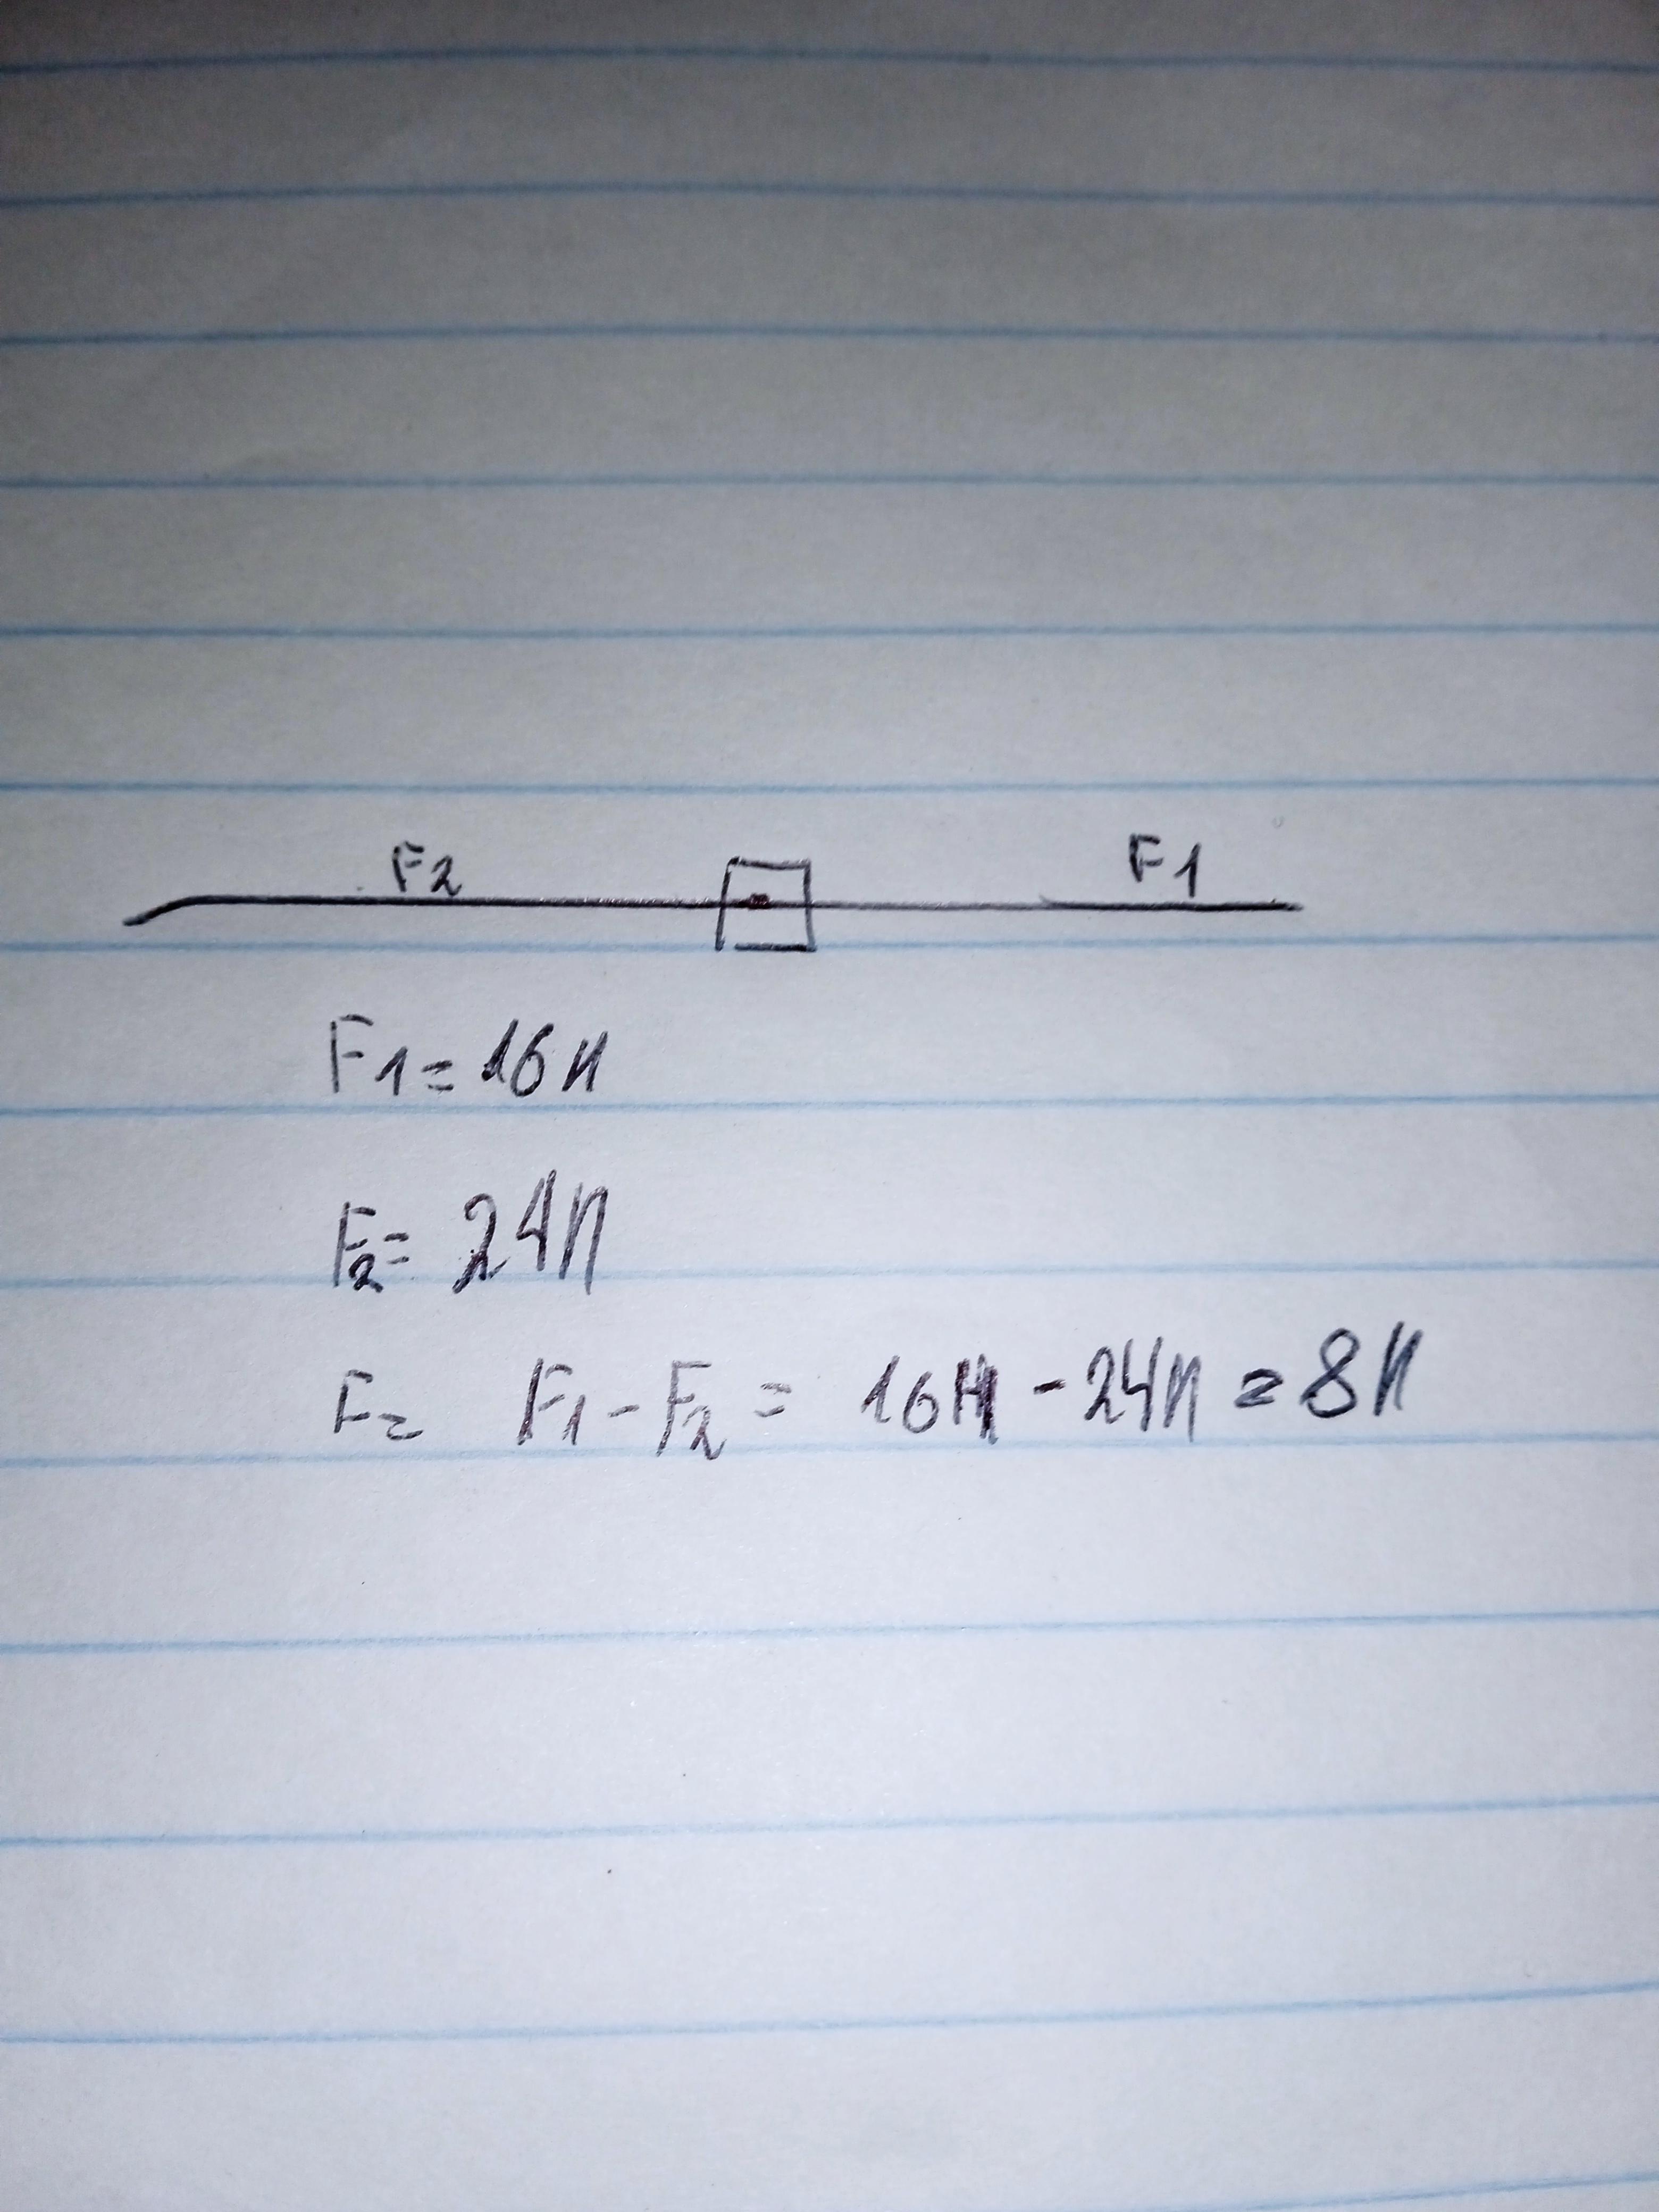 F2 F1
F1 = 16n
F2 = 24n
F = F1 - F2 = 16n - 24n = 8n